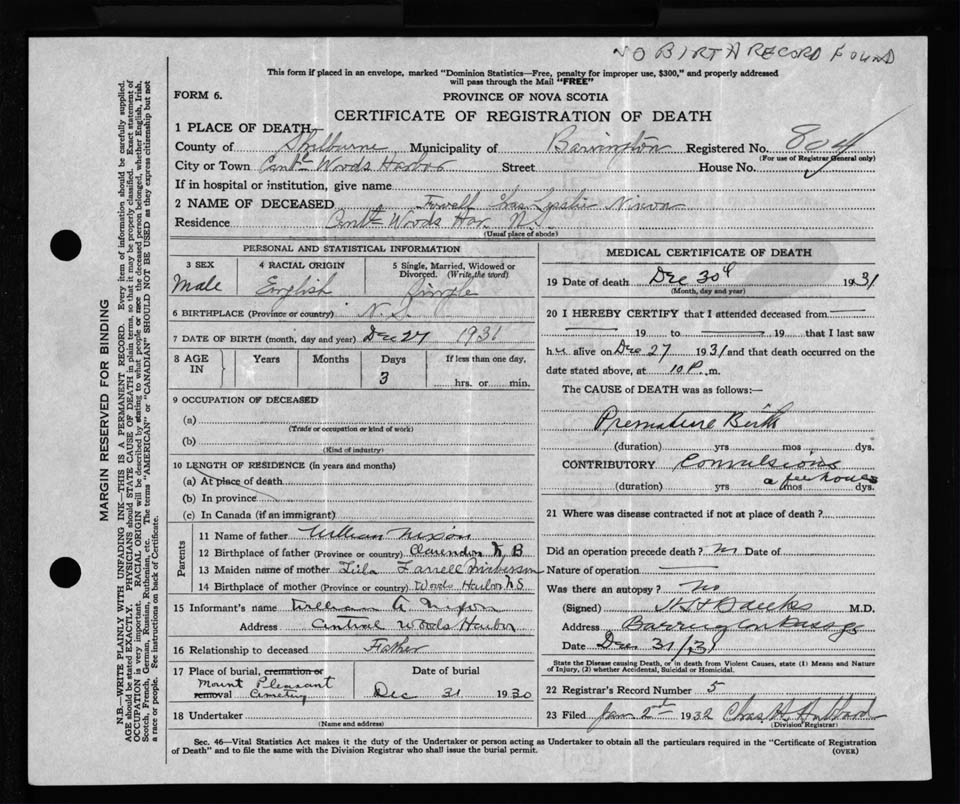 NO BIRTH RECORD FOUND
This form if placed in an envelope, marked "Dominion Statistics—Free, penalty for improper use, $300," and properly addressed
will pass through the Mail "FREE"
FORM 6.
PROVINCE OF NOVA SCOTIA
CERTIFICATE OF REGISTRATION OF DEATH
1 PLACE OF DEATH
County of Shelburne Municipality of Barrington Registered No. 804
(For use of Registrar General only)
City or Town Centl Woods Harbor Street House No.
If in hospital or institution, give name
2 NAME OF DECEASED Leslie Nixon
Residence Centl Woods Har. N.S.
(Usual place of abode)
PERSONAL AND STATISTICAL INFORMATION
3 SEX 4 RACIAL ORIGIN 5 Single, Married, Widowed or
Divorced. (Write the word)
Male English Single
6 BIRTHPLACE (Province or country) N.S.
7 DATE OF BIRTH (month, day and year) Dec 27 1931
8 AGE Years Months Days If less than one day,
IN 3 hrs. or min.
9 OCCUPATION OF DECEASED
(a)
(Trade or occupation or kind of work)
(b)
(Kind of industry)
10 LENGTH OF RESIDENCE (in years and months)
(a) At place of death
(b) In province
(c) In Canada (if an immigrant)
Parents
11 Name of father William Nixon
12 Birthplace of father (Province or country) Clarendon N B
13 Maiden name of mother Lila Farrell Nickerson
14 Birthplace of mother (Province or country) Woods Harbor N S
15 Informant's name William A Nixon
Address Central Woods Harbor
16 Relationship to deceased Father
17 Place of burial, cremation or Date of burial
Mount Pleasant
removal Cemetery Dec 31 1930
18 Undertaker
(Name and address)
MEDICAL CERTIFICATE OF DEATH
19 Date of death Dec 30th 1931
(Month, day and year)
20 I HEREBY CERTIFY that I attended deceased from—
— 19 to — 19 that I last saw
h alive on Dec 27 1931 and that death occurred on the
date stated above, at 10 P. m.
The CAUSE of DEATH was as follows:—
Premature Birth
(duration) yrs mos dys.
CONTRIBUTORY Convulsions
a few hours
(duration) yrs mos dys.
21 Where was disease contracted if not at place of death?
Did an operation precede death? no Date of
Nature of operation —
Was there an autopsy? no
(Signed) Banks M.D.
Address Barrington Passage
Date Dec 31/31
State the Disease causing Death, or in death from Violent Causes, state (1) Means and Nature
of Injury, (2) whether Accidental, Suicidal or Homicidal.
22 Registrar's Record Number 5
23 Filed Jan 2nd 1932 Chas H.
(Division Registrar)
Sec. 46—Vital Statistics Act makes it the duty of the Undertaker or person acting as Undertaker to obtain all the particulars required in the "Certificate of Registration
of Death" and to file the same with the Division Registrar who shall issue the burial permit. (OVER)
MARGIN RESERVED FOR BINDING
N.B.—WRITE PLAINLY WITH UNFADING INK—THIS IS A PERMANENT RECORD. Every item of information should be carefully supplied.
AGE should be stated EXACTLY. PHYSICIANS should STATE CAUSE OF DEATH in plain terms, so that it may be properly classified. Exact statement of
OCCUPATION is very important. RACIAL ORIGIN will be described by stating to what people or race the deceased person belonged, whether English, Irish,
Scotch, French, German, Russian, Ruthenian, etc. The terms "AMERICAN" or "CANADIAN" SHOULD NOT BE USED as they express citizenship but not
a race or people. See instructions on back of Certificate.